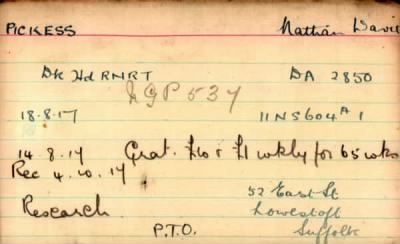 PICKESS Nathan David
Dk Hd RNRT DA 2850
NGP 537
18.8.17 11NS604A1
14.8.17 Grat. £10 + £1 wkly for 65 wks
Rec 4.10.17
52 East St
Research Lowestoft
P.T.O. Suffolk